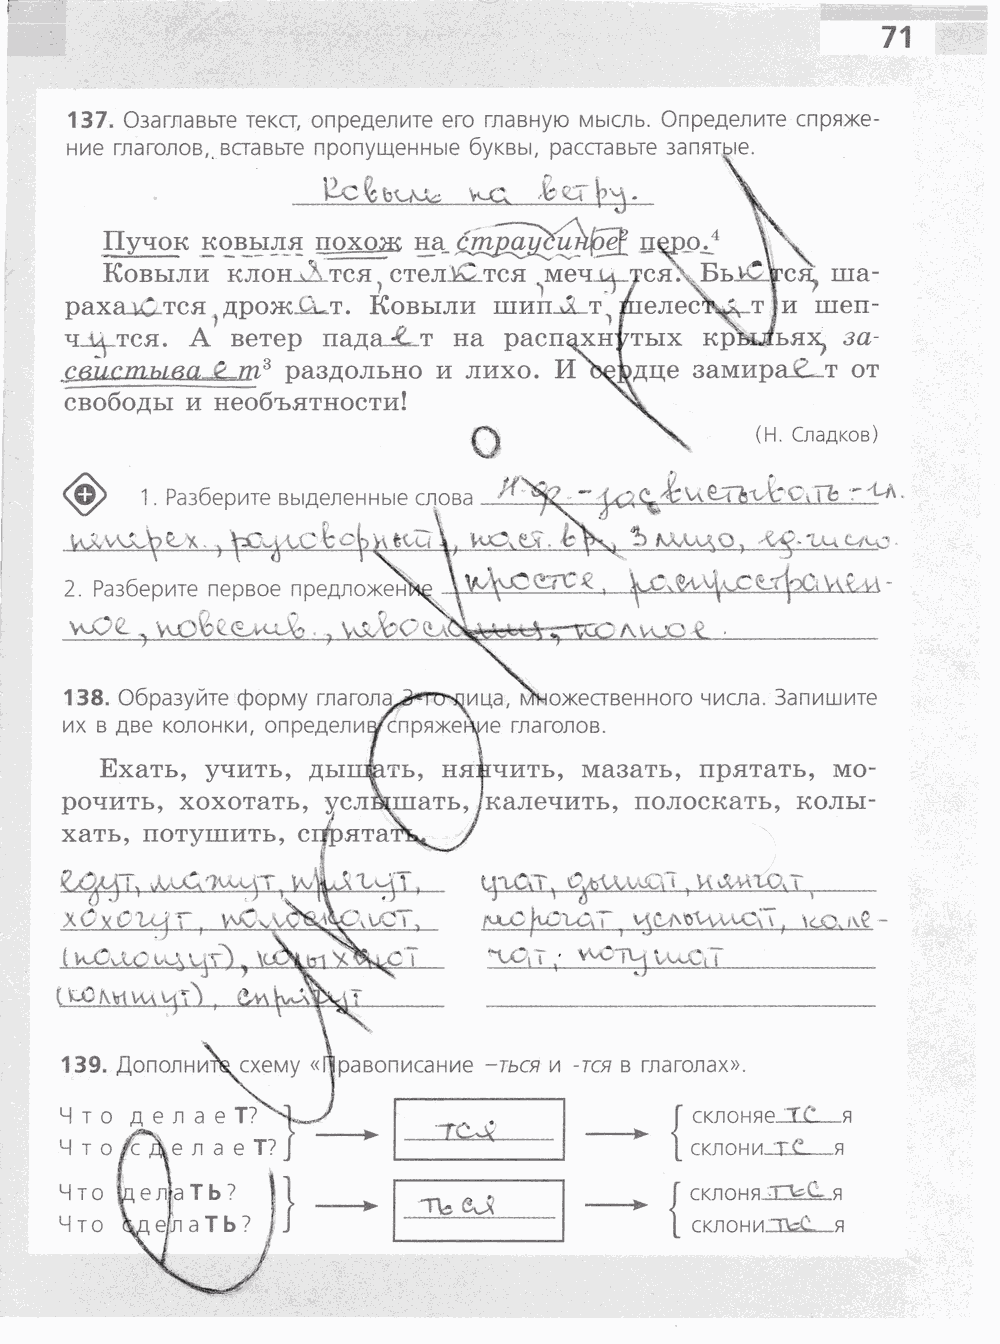 71
137. Озаглавьте текст, определите его главную мысль. Определите спряже-
ние глаголов, вставьте пропущенные буквы, расставьте запятые.
Ковыль на ветру.
Пучок ковыля похож на страусиное² перо.⁴
Ковыли клонятся, стелются, мечутся. Бьются, ша-
рахаются, дрожат. Ковыли шипят, шелестят и шеп-
чутся. А ветер падает на распахнутых крыльях, за-
свистывает³ раздольно и лихо. И сердце замирает от
свободы и необъятности!
(Н. Сладков)
1. Разберите выделенные слова н.ф. - засвистывать - гл.
неперех., разговорный, наст. вр., 3 лицо, ед. число.
2. Разберите первое предложение простое, распространен-
ное, повеств., невосклиц., полное.
138. Образуйте форму глагола 3-го лица, множественного числа. Запишите
их в две колонки, определив спряжение глаголов.
Ехать, учить, дышать, нянчить, мазать, прятать, мо-
рочить, хохотать, услышать, калечить, полоскать, колы-
хать, потушить, спрятать.
едут, мажут, прячут, учат, дышат, нянчат,
хохочут, полоскают, морочат, услышат, кале-
(полощут), колыхают чат, потушат
(колышут), спрячут
139. Дополните схему «Правописание –ться и -тся в глаголах».
Что делаеТ? склоняется
тся
Что сделаеТ? склонится
Что делаТЬ? склоняться
ться
Что сделаТЬ? склониться